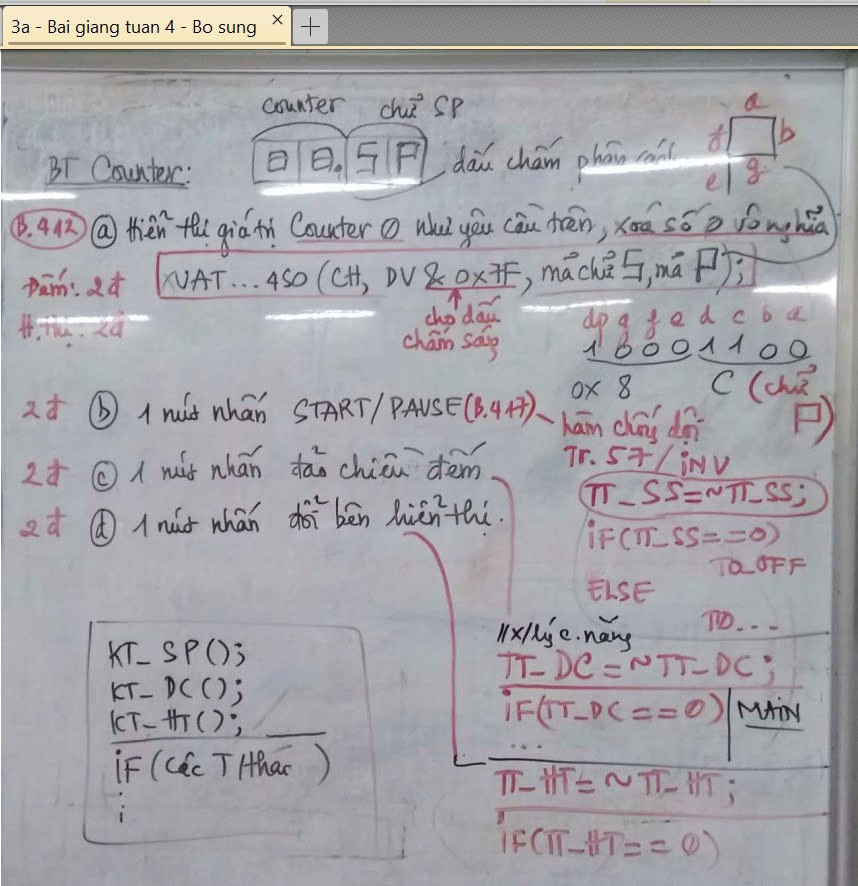 3a - Bai giang tuan 4 - Bo sung
counter chữ SP
BT Counter: 8 8. S P dấu chấm phân cách
a
f b
g
e
B.412 ⓐ Hiển thị giá trị Counter 0 như yêu cầu trên, xoá số 0 vô nghĩa
Đếm: 2đ XUAT...4SO (CH, DV & 0x7F, mã chữ S, mã P);
H.thị: 2đ cho dấu chấm sáng
dp g f e d c b a
1 0 0 0 1 1 0 0
0x 8 C (chữ P)
2đ ⓑ 1 nút nhấn START/PAUSE (B.417)
hàm chống dội
Tr. 57/INV
2đ ⓒ 1 nút nhấn đảo chiều đếm
TT_SS=~TT_SS;
2đ ⓓ 1 nút nhấn đổi bên hiển thị.
IF(TT_SS==0)
T0_OFF
ELSE
T0...
//x/lý c.năng
TT_DC=~TT_DC;
IF(TT_DC==0) MAIN
...
TT_HT=~TT_HT;
IF(TT_HT==0)
KT_SP();
KT_DC();
KT_HT();
IF(Các T/thái)
⋮